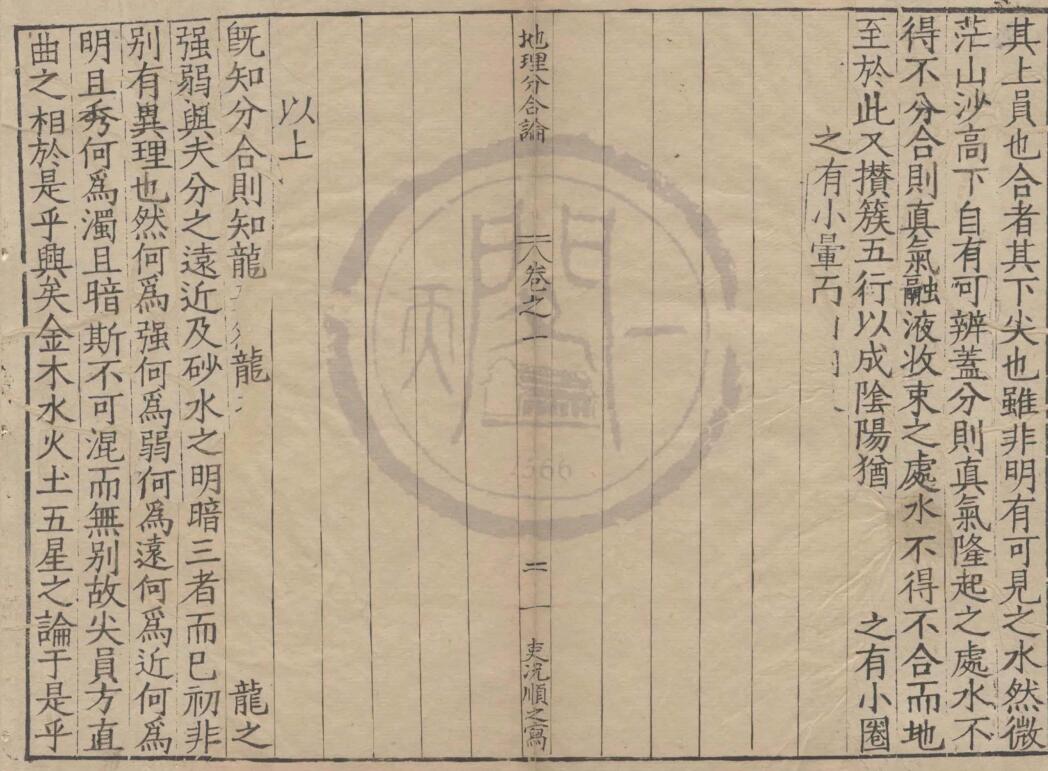 其上員也合者其下尖也雖非明有可見之水然微
茫山沙高下自有可辨蓋分則真氣隆起之處水不
得不分合則真氣融液收束之處水不得不合而地
至於此又攅簇五行以成陰陽猶之有小圈
之有小暈而
地理分合論
卷之一
二一
吏沈順之寫
以上
旣知分合則知龍龍龍之
强弱與夫分之遠近及砂水之明暗三者而已初非
别有異理也然何爲强何爲弱何爲遠何爲近何爲
明且秀何爲濁且暗斯不可混而無别故尖員方直
曲之相於是乎興矣金木水火土五星之論于是乎